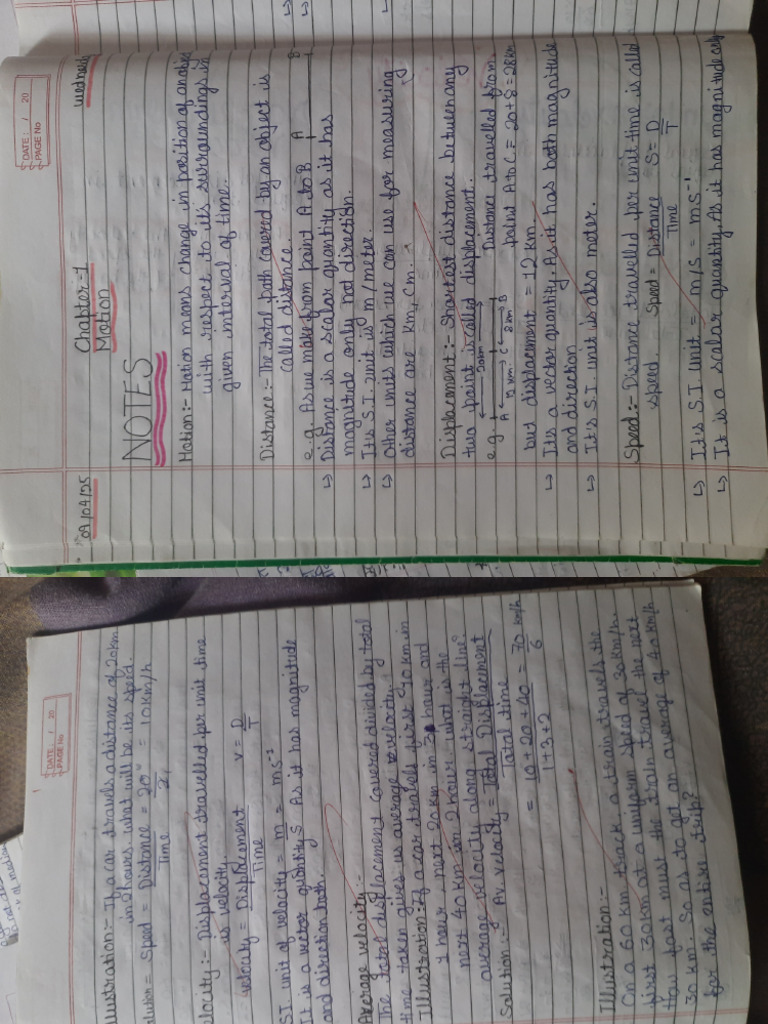 DATE: / 20
PAGE No
09/04/25 Chapter-1 wednesday
Motion
NOTES
Motion:- Motion means change in position of an object
with respect to its surroundings in
given interval of time.
Distance:- The total path covered by an object is
called distance.
e.g. As we make from point A to B A B
↳ Distance is a scalar quantity as it has
magnitude only not direction.
↳ Its S.I. unit is m/meter.
↳ Other units which we can use for measuring
distance are Km, Cm.
Displacement:- Shortest distance between any
two point is called displacement.
e.g. 20km Distance travelled from
A 12 km C 8km B point A to C = 20+8=28km
but displacement = 12 km.
↳ Its a vector quantity. As it has both magnitude
and direction
↳ It's S.I. unit is also meter.
Speed:- Distance travelled per unit time is called
speed. Speed = Distance / Time S = D / T
↳ It's S.I unit = m/s = ms⁻¹
↳ It is a scalar quantity. As it has magnitude only
DATE: / 20
PAGE No
llustration:- If a car travels a distance of 20km
in 2 hours what will be its speed.
lution = Speed = Distance / Time = 20 / 2 = 10Km/h
locity:- Displacement travelled per unit time
is velocity.
velocity = Displacement / Time v = D / T
SI unit of velocity = m / s = ms⁻¹
It is a vector quantity As it has magnitude
and direction both.
Average velocity:-
The total displacement covered divided by total
time taken gives us average velocity.
Illustration: If a car travels first 10 km in
1 hour, next 20 km in 3 hour and
next 40 km in 2 hour. what is the
average velocity along straight line?
Solution:- Av. velocity = Total Displacement / Total time
= 10+20+40 / 1+3+2 = 70 / 6 km/h
Illustration:-
On a 60 km track, a train travels the
first 30 km at a uniform speed of 30 km/h.
How fast must the train travel the next
30 km. So as to get an average of 40 km/h
for the entire trip?